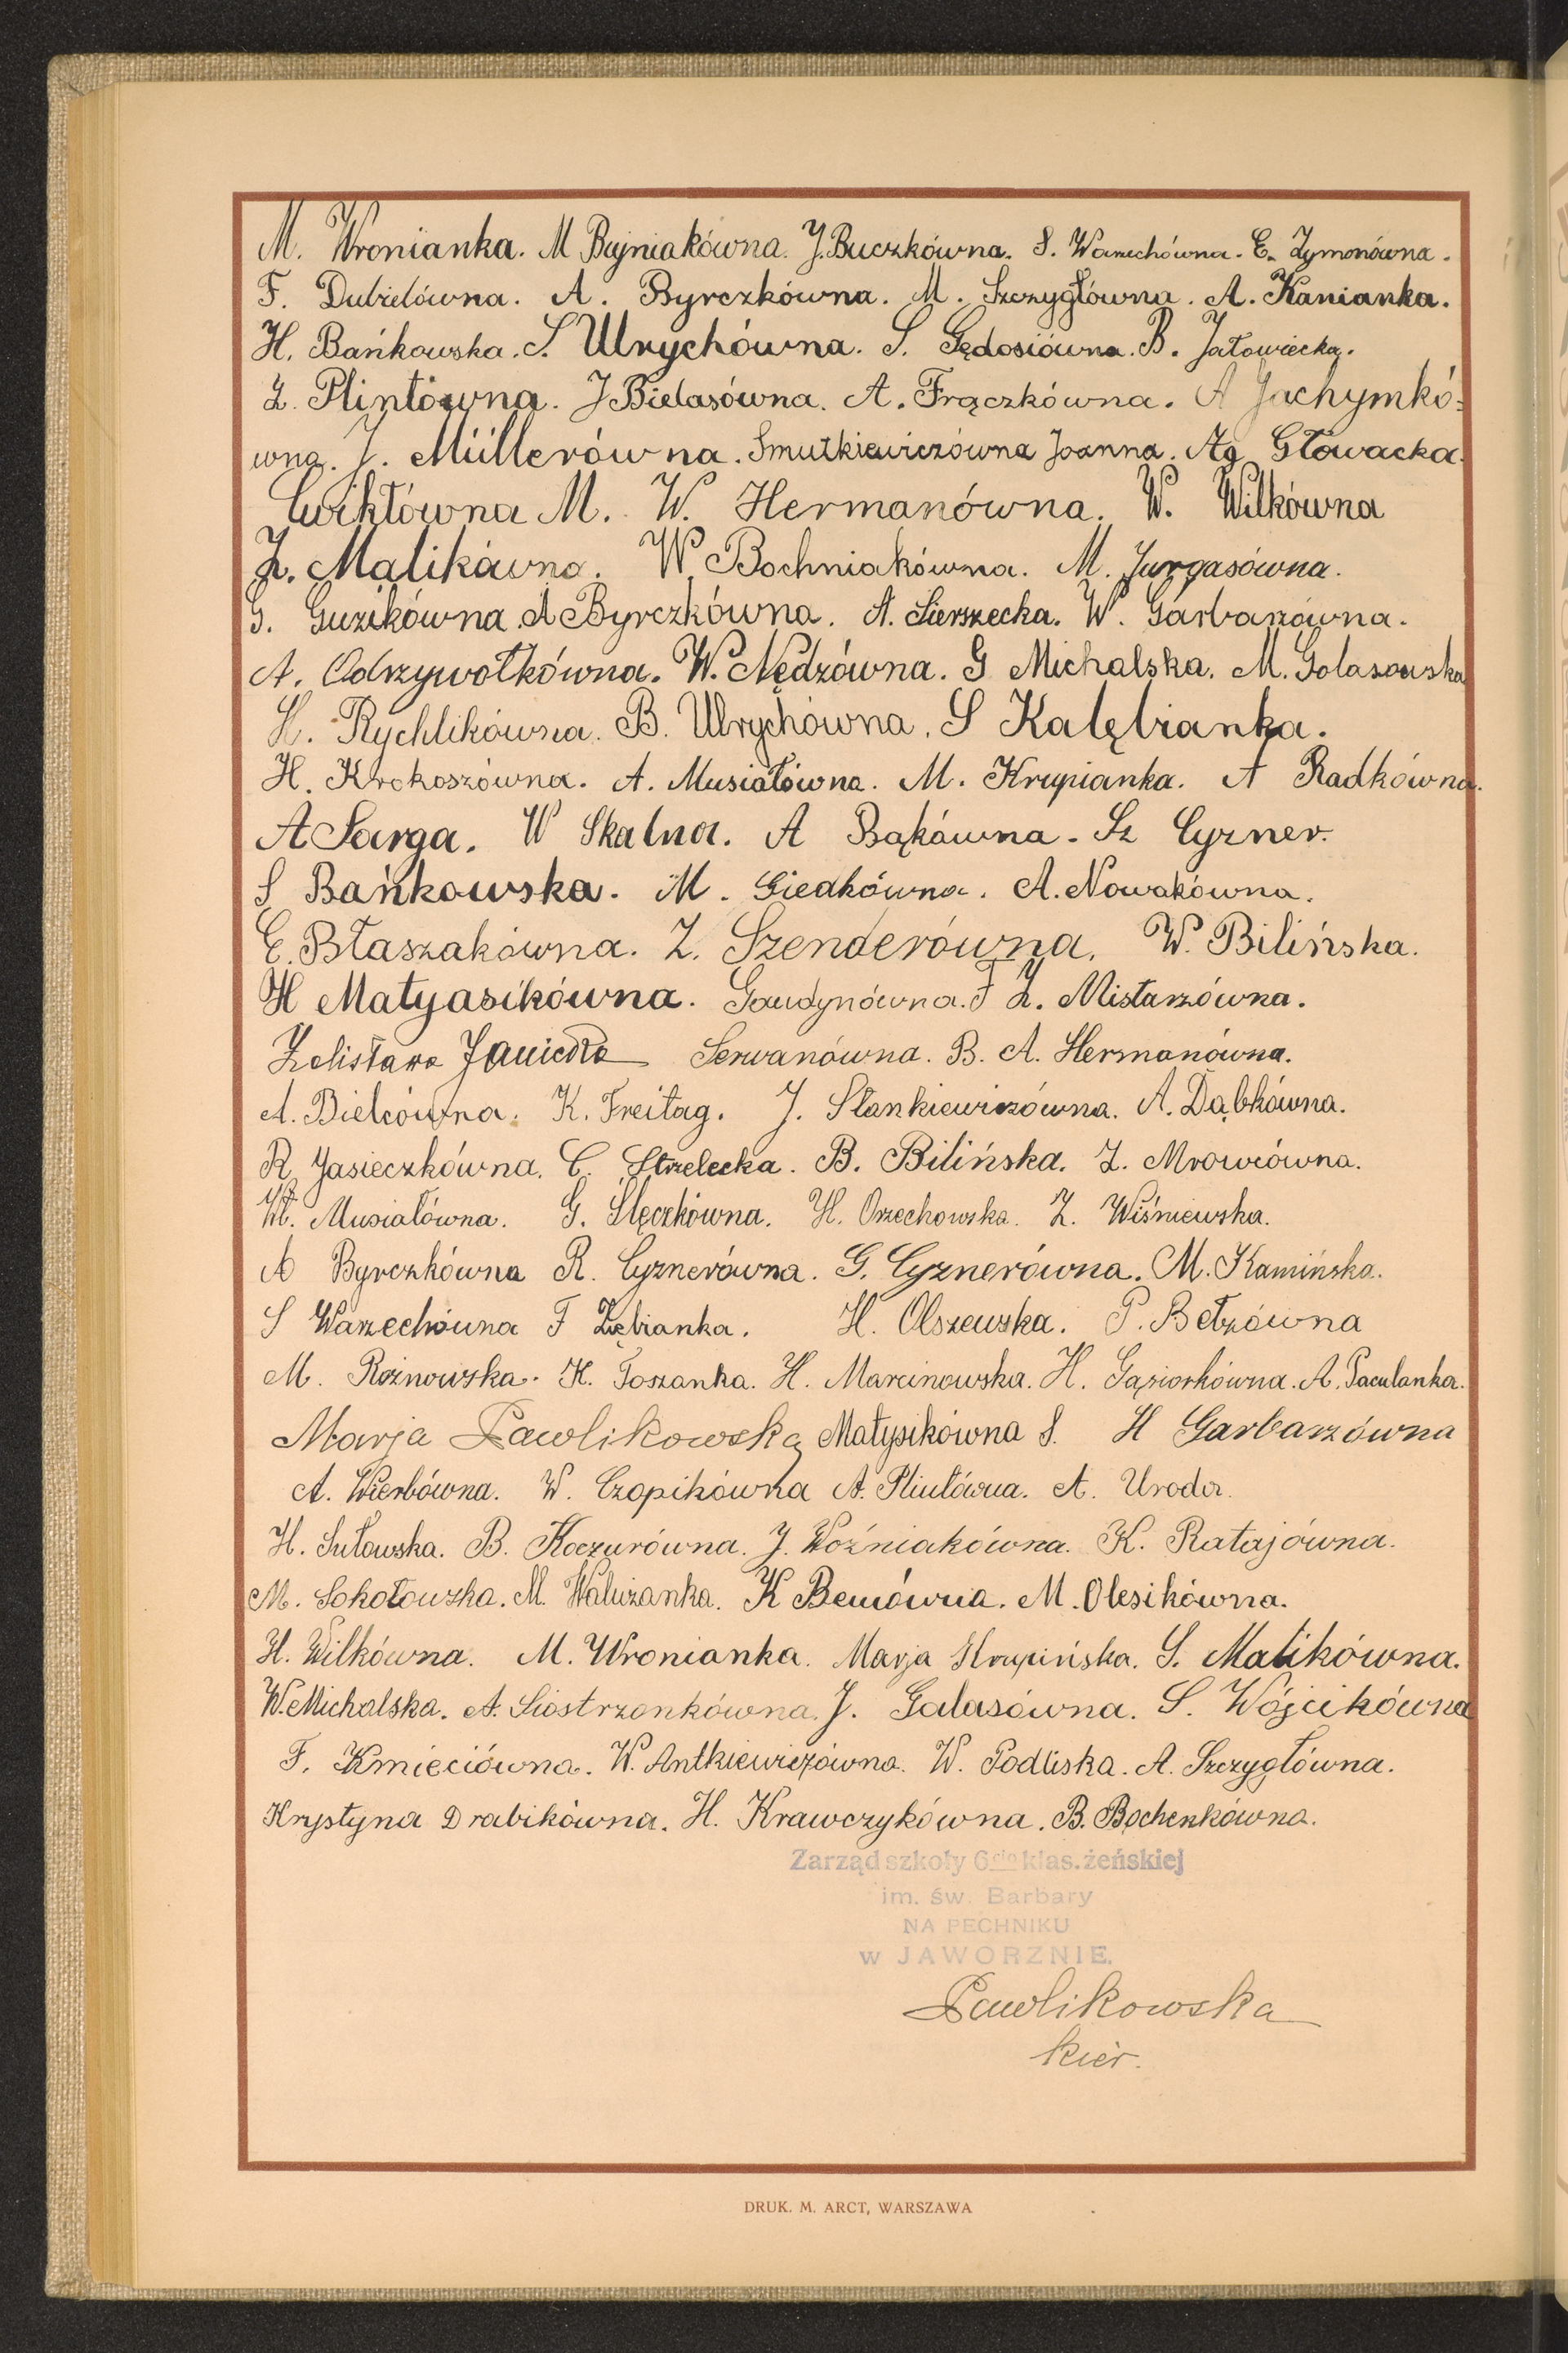 M. Wronianka. M Bujniakówna. J. Buczkówna. S. Warzechówna. E. Zymonówna.
F. Dubielówna. A. Byrczkówna. M. Szczygłówna. A. Kanianka.
H. Bańkowska. S. Ulrychówna. S. Gędosiówna. B. Jałowiecka.
Z. Plintówna. J Bielasówna. A. Frączkówna. A Jachymkó-
wna. J. Müllerówna. Smutkiewiczówna Joanna. Ag Głowacka.
Ćwikłówna M. W. Hermanówna. W. Wilkówna
Z. Malikówna. W. Bochniakówna. M. Jurgasówna.
G. Guzikówna A Byrczkówna. A. Sierszecka. W. Garbarzówna.
A. Odrzywołkówna. W. Nędzówna. G Michalska. M. Golasowska
H. Rychlikówna. B. Ulrychówna. S Kalębianka.
H. Krokoszówna. A. Musiałówna. M. Krupianka. A Radkówna.
A Sarga. W Skalna. A Bąkówna. Sz Cyrner.
S Bańkowska. M. Giedkówna. A. Nowakówna.
E. Błaszakówna. Z. Szenderówna. W. Bilińska.
H Matyasikówna. Gaudynówna. F Z. Mistarzówna.
Zdisława Janicka Serwanówna. B. A. Hermanówna.
A. Bielcówna. K. Freitag. J. Stankiewiczówna. A. Dąbkówna.
R Jasieczkówna. C. Strzelecka. B. Bilińska. Z. Mrowcówna.
W. Musiałówna. G. Ślęczkówna. H. Orzechowska. Z. Wiśniewska.
A Byrczkówna R. Cyznerówna. G. Cyznerówna. M. Kamińska.
S Warzechówna F Ziębianka. H. Olszewska. P. Betzówna
M. Rożnowska. K. Toszanka. H. Marcinowska. H. Gąsiorkówna. A. Paculanka.
Marja Pawlikowska Małysikówna S. H Garbarzówna
A. Wierbówna. W. Czopikówna A. Pliutówna. A. Uroda.
H. Sułowska. B. Koczurówna. J. Woźniakówna. K. Ratajówna.
M. Sokołowska. M. Waluzanka. K Bemówna. M. Olesikówna.
H. Wilkówna. M. Wronianka. Marja Krupińska. S. Malikówna.
W. Michalska. A. Siostrzonkówna. J. Galasówna. S. Wójcikówna
F. Kmieciówna. W. Antkiewiczówna. W. Podliska. A. Szczygłówna.
Krystyna Drabikówna. H. Krawczykówna. B. Bochenkówna.
Zarząd szkoły 6cio klas. żeńskiej
im. św. Barbary
NA PECHNIKU
w JAWORZNIE.
Pawlikowska
kier.
DRUK. M. ARCT, WARSZAWA